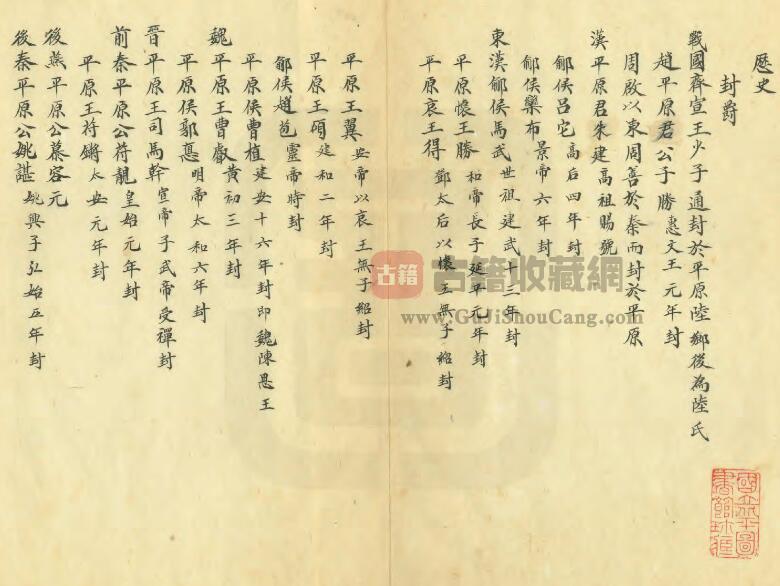 歷史
封爵
戰國齊宣王少子通封於平原陸鄉後為陸氏
趙平原君公子勝惠文王元年封
周啟以東周善於秦而封於平原
漢平原君朱建高祖賜號
鄃侯呂它高后四年封
鄃侯欒布景帝六年封
東漢鄃侯馬武世祖建武十三年封
平原懷王勝和帝長子延平元年封
平原哀王得鄧太后以懷王無子紹封
平原王翼安帝以哀王無子紹封
平原王碩建和二年封
鄃侯趙苞靈帝時封
平原侯曹植建安十六年封即魏陳思王
魏平原王曹叡黃初三年封
平原侯郭悳明帝太和六年封
晉平原王司馬幹宣帝子武帝受禪封
前秦平原公苻靚皇始元年封
平原王苻鏘太安元年封
後燕平原公慕容元
後秦平原公姚諶姚興子弘始五年封
古籍 古籍收藏網
www.GuJiShouCang.com
國立北平圖
書館珍藏